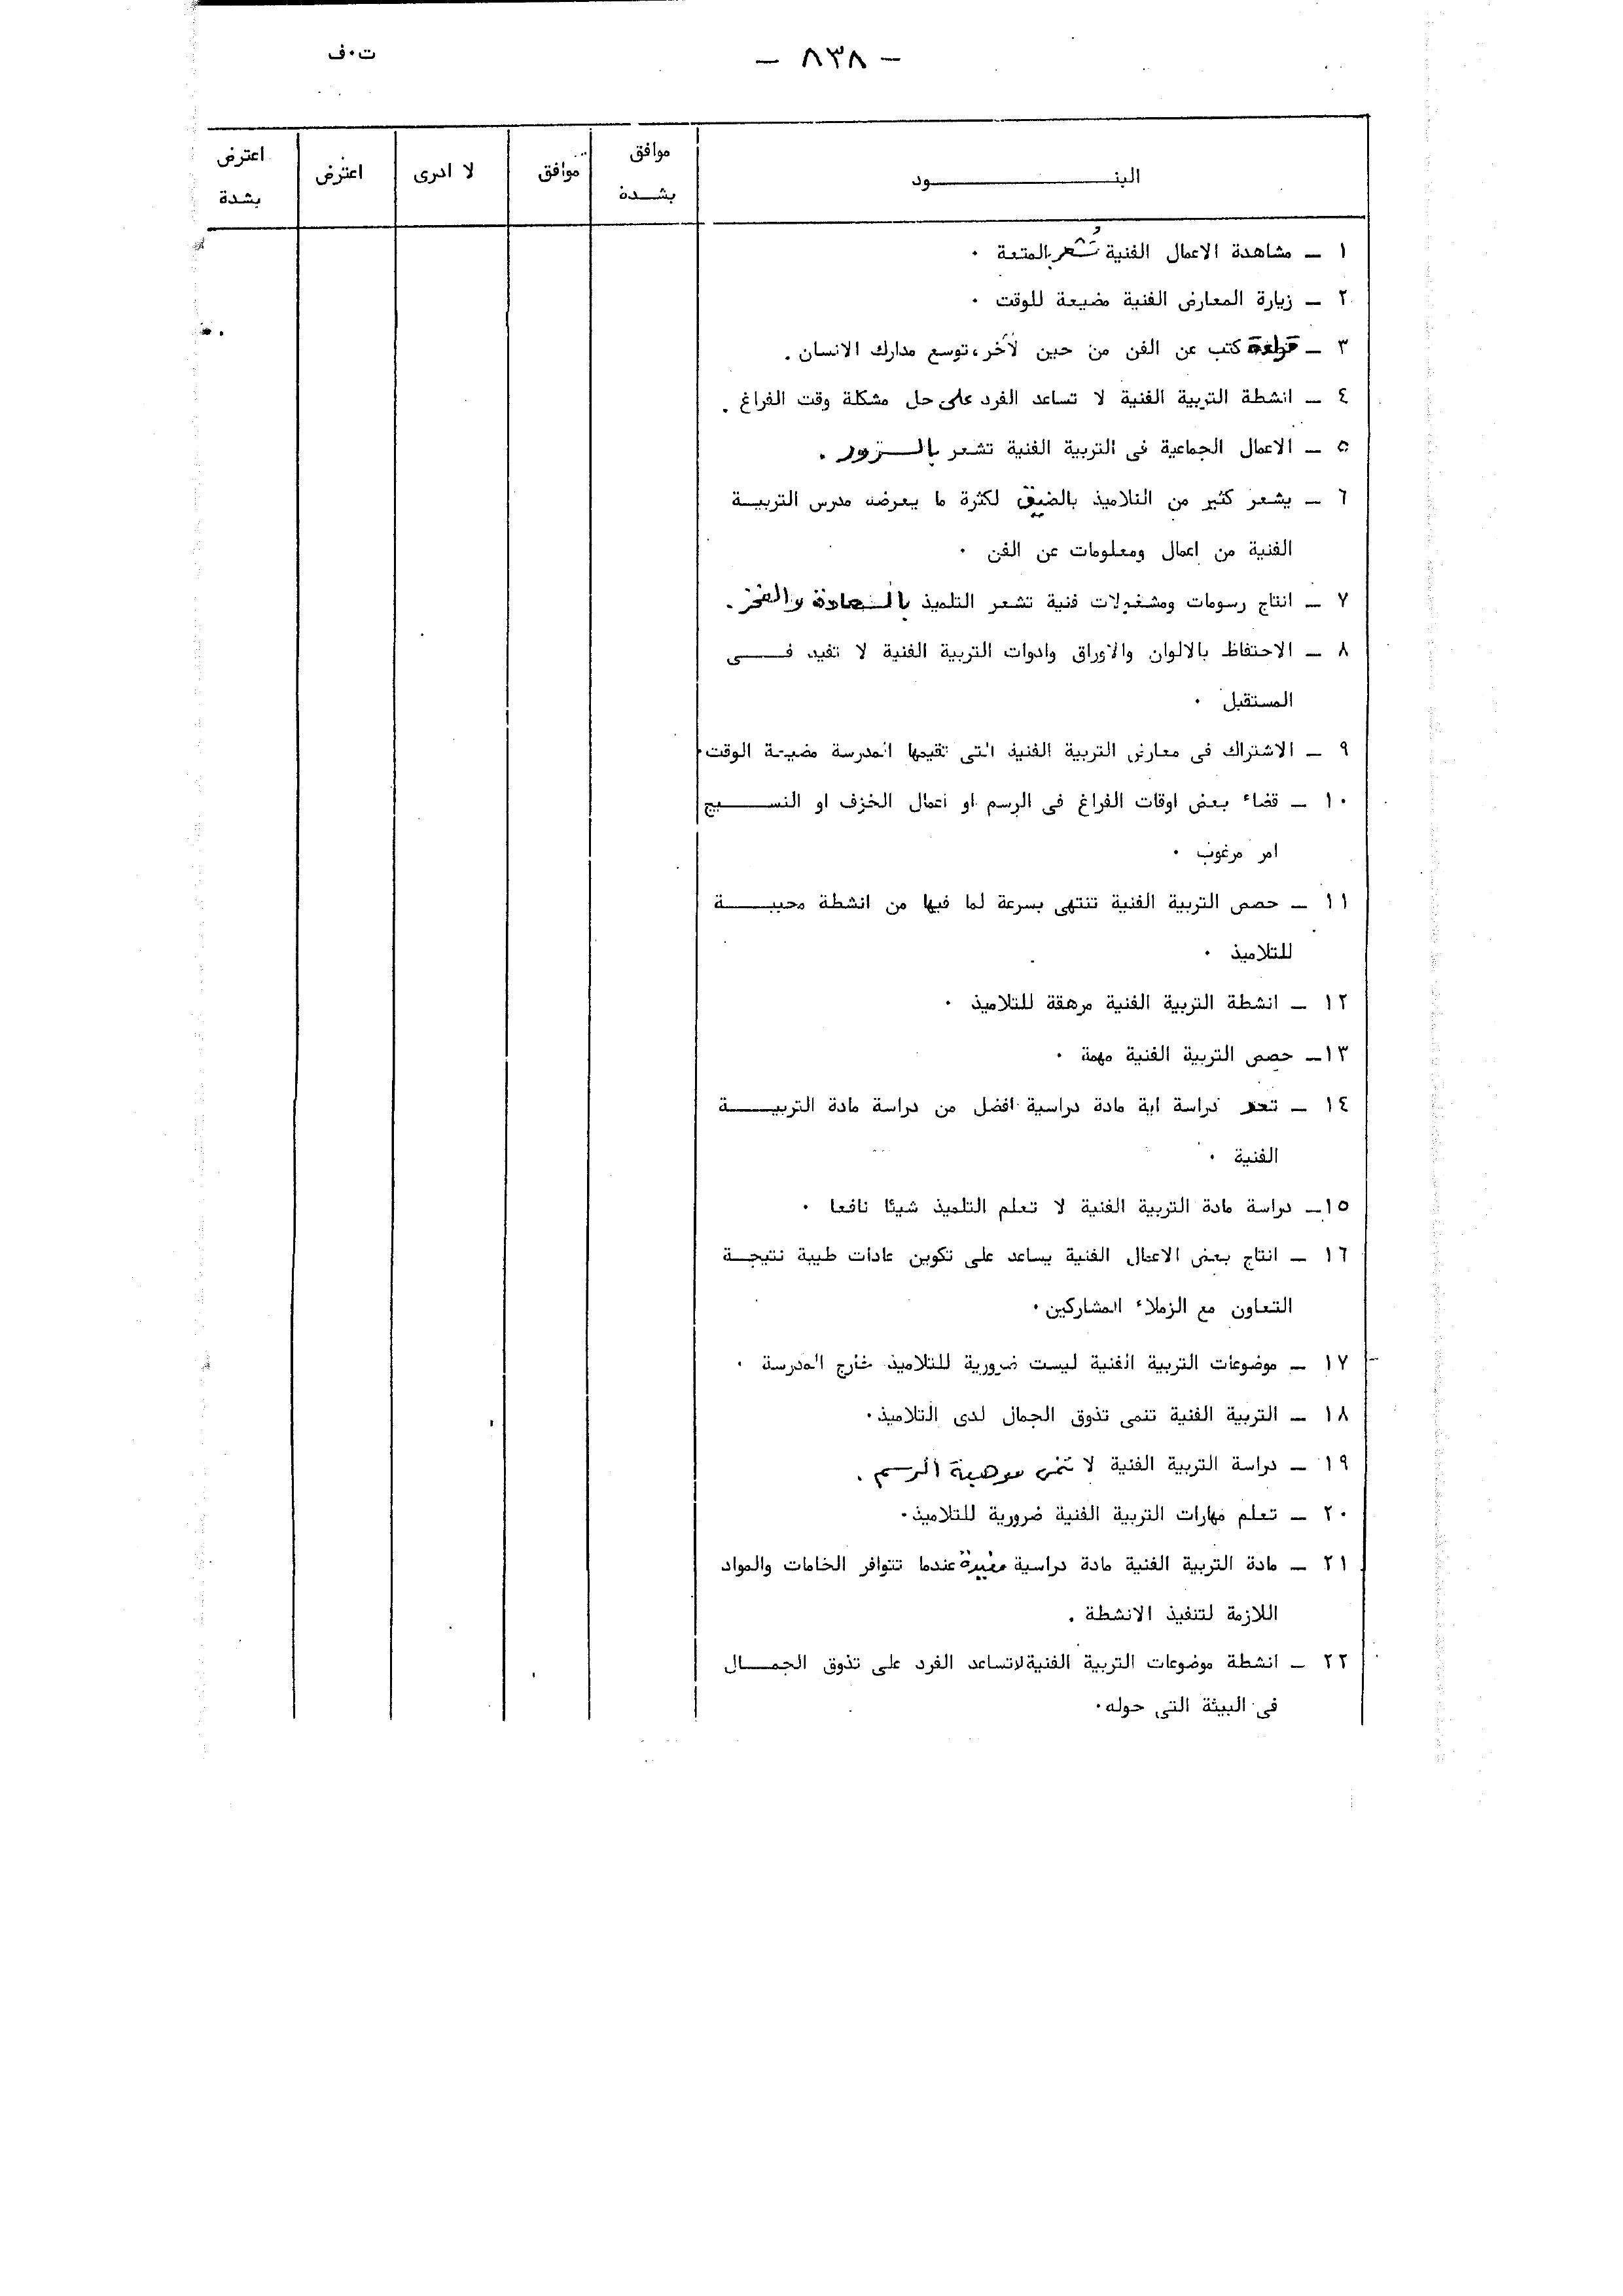 - ٨٣٨ -
ت٠ف
البنـــــــود
موافق بشـدة
موافق
لا ادرى
اعترض
اعترض بشدة
١ - مشاهدة الاعمال الفنية تُشعر بالمتعة ٠
٢ - زيارة المعارض الفنية مضيعة للوقت ٠
٣ - كتب عن الفن من حين لآخر، توسع مدارك الانسان .
٤ - انشطة التربية الفنية لا تساعد الفرد على حل مشكلة وقت الفراغ .
٥ - الاعمال الجماعية فى التربية الفنية تشعر .
٦ - يشعر كثير من التلاميذ بالضيق لكثرة ما يعرضه مدرس التربيـة
الفنية من اعمال ومعلومات عن الفن ٠
٧ - انتاج رسومات ومشغولات فنية تشعر التلميذ بالسعادة والفخر .
٨ - الاحتفاظ بالالوان والاوراق وادوات التربية الفنية لا تفيد فــى
المستقبل ٠
٩ - الاشتراك فى معارض التربية الفنية التى تقيمها المدرسة مضيعة الوقت٠
١٠ - قضاء بعض اوقات الفراغ فى الرسم او اعمال الخزف او النســيج
امر مرغوب ٠
١١ - حصص التربية الفنية تنتهى بسرعة لما فيها من انشطة محببــة
للتلاميذ ٠
١٢ - انشطة التربية الفنية مرهقة للتلاميذ ٠
١٣ - حصص التربية الفنية مهمة ٠
١٤ - تعد دراسة اية مادة دراسية افضل من دراسة مادة التربيــة
الفنية ٠
١٥ - دراسة مادة التربية الفنية لا تعلم التلميذ شيئا نافعا ٠
١٦ - انتاج بعض الاعمال الفنية يساعد على تكوين عادات طيبة نتيجـة
التعاون مع الزملاء المشاركين ٠
١٧ - موضوعات التربية الفنية ليست ضرورية للتلاميذ خارج المدرسة ٠
١٨ - التربية الفنية تنمى تذوق الجمال لدى التلاميذ٠
١٩ - دراسة التربية الفنية لا تنمى موهبة الرسم .
٢٠ - تعلم مهارات التربية الفنية ضرورية للتلاميذ٠
٢١ - مادة التربية الفنية مادة دراسية مفيدة عندما تتوافر الخامات والمواد
اللازمة لتنفيذ الانشطة .
٢٢ - انشطة موضوعات التربية الفنية لاتساعد الفرد على تذوق الجمـال
فى البيئة التى حوله٠